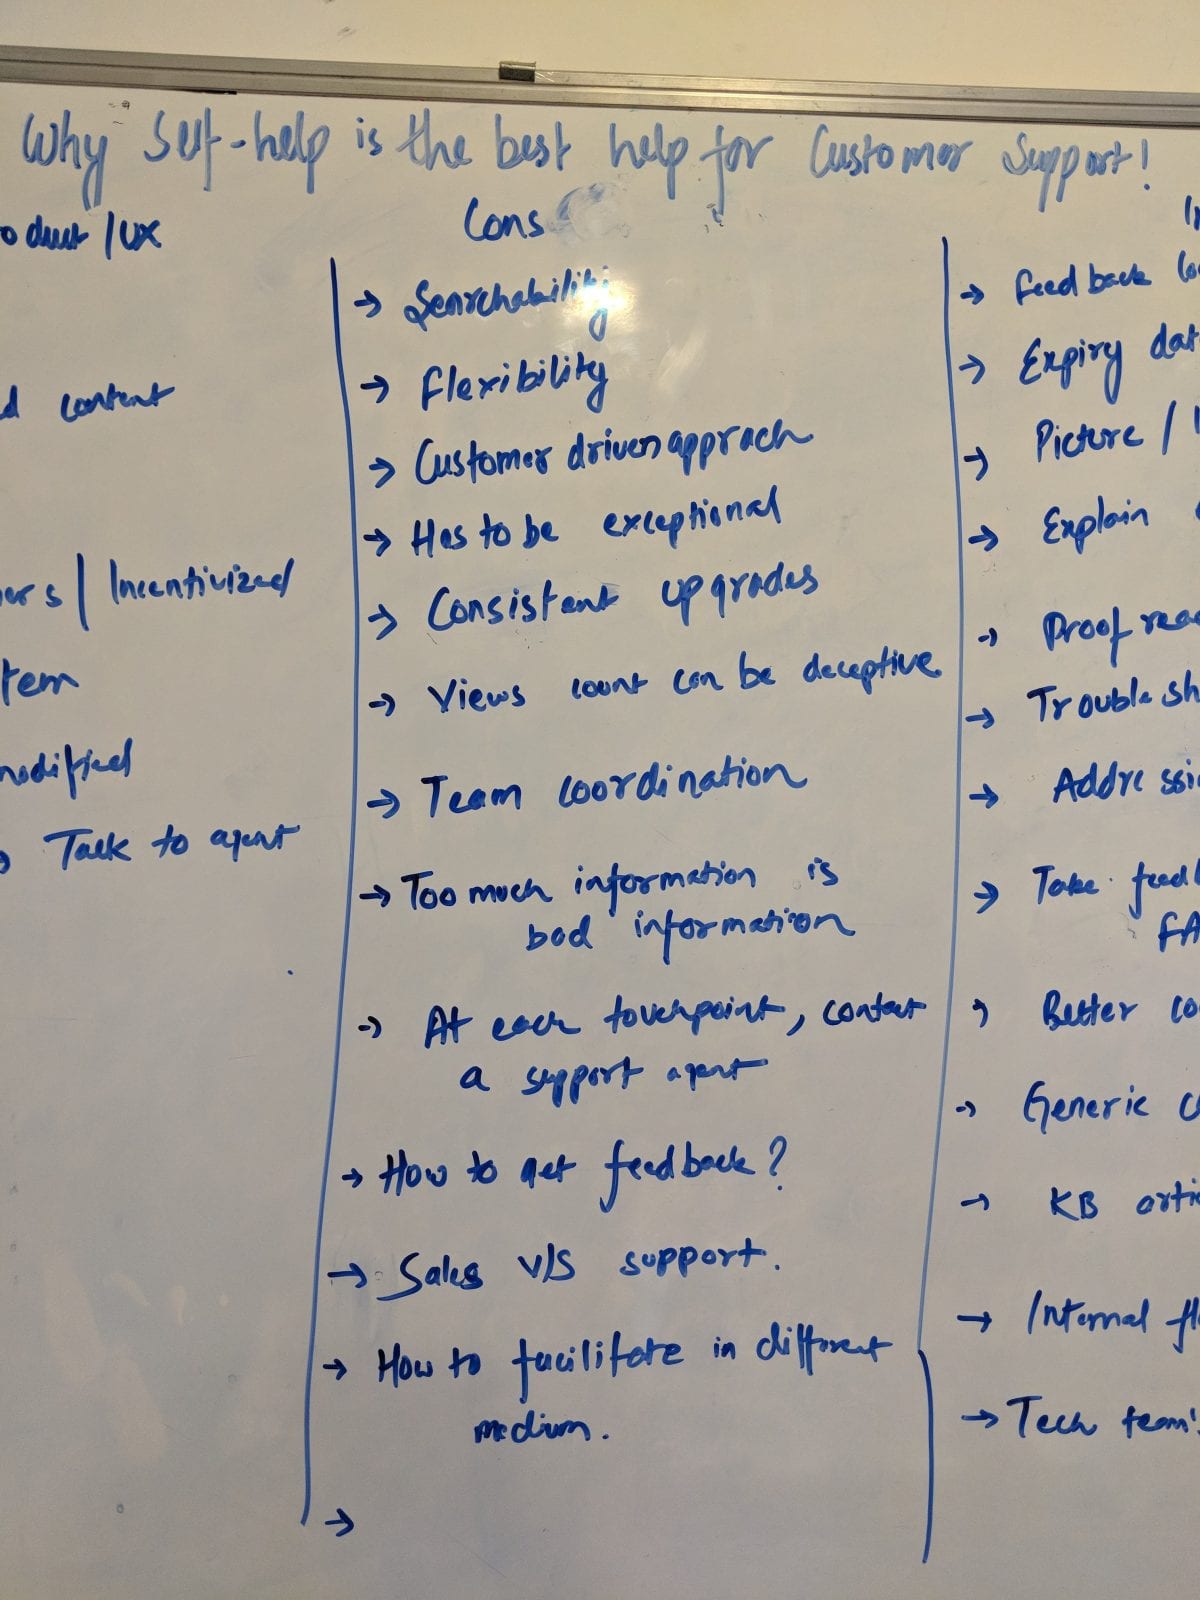 Why Self-help is the best help for Customer Support!
/UX
content
Incentivized
modified
Talk to agent
Cons
→ Searchability
→ Flexibility
→ Customer driven apprach
→ Has to be exceptional
→ Consistent upgrades
→ Views count can be deceptive
→ Team coordination
→ Too much information is
bad information
→ At each touchpoint, contact
a support agent
→ How to get feedback?
→ Sales v/s support.
→ How to facilitate in different
medium.
→
→ Feedback
→ Expiry
→ Picture /
→ Explain
→ Proof
→
→
→ Take
→ Better
→ Generic
→ KB
→ Internal
→ Tech team's